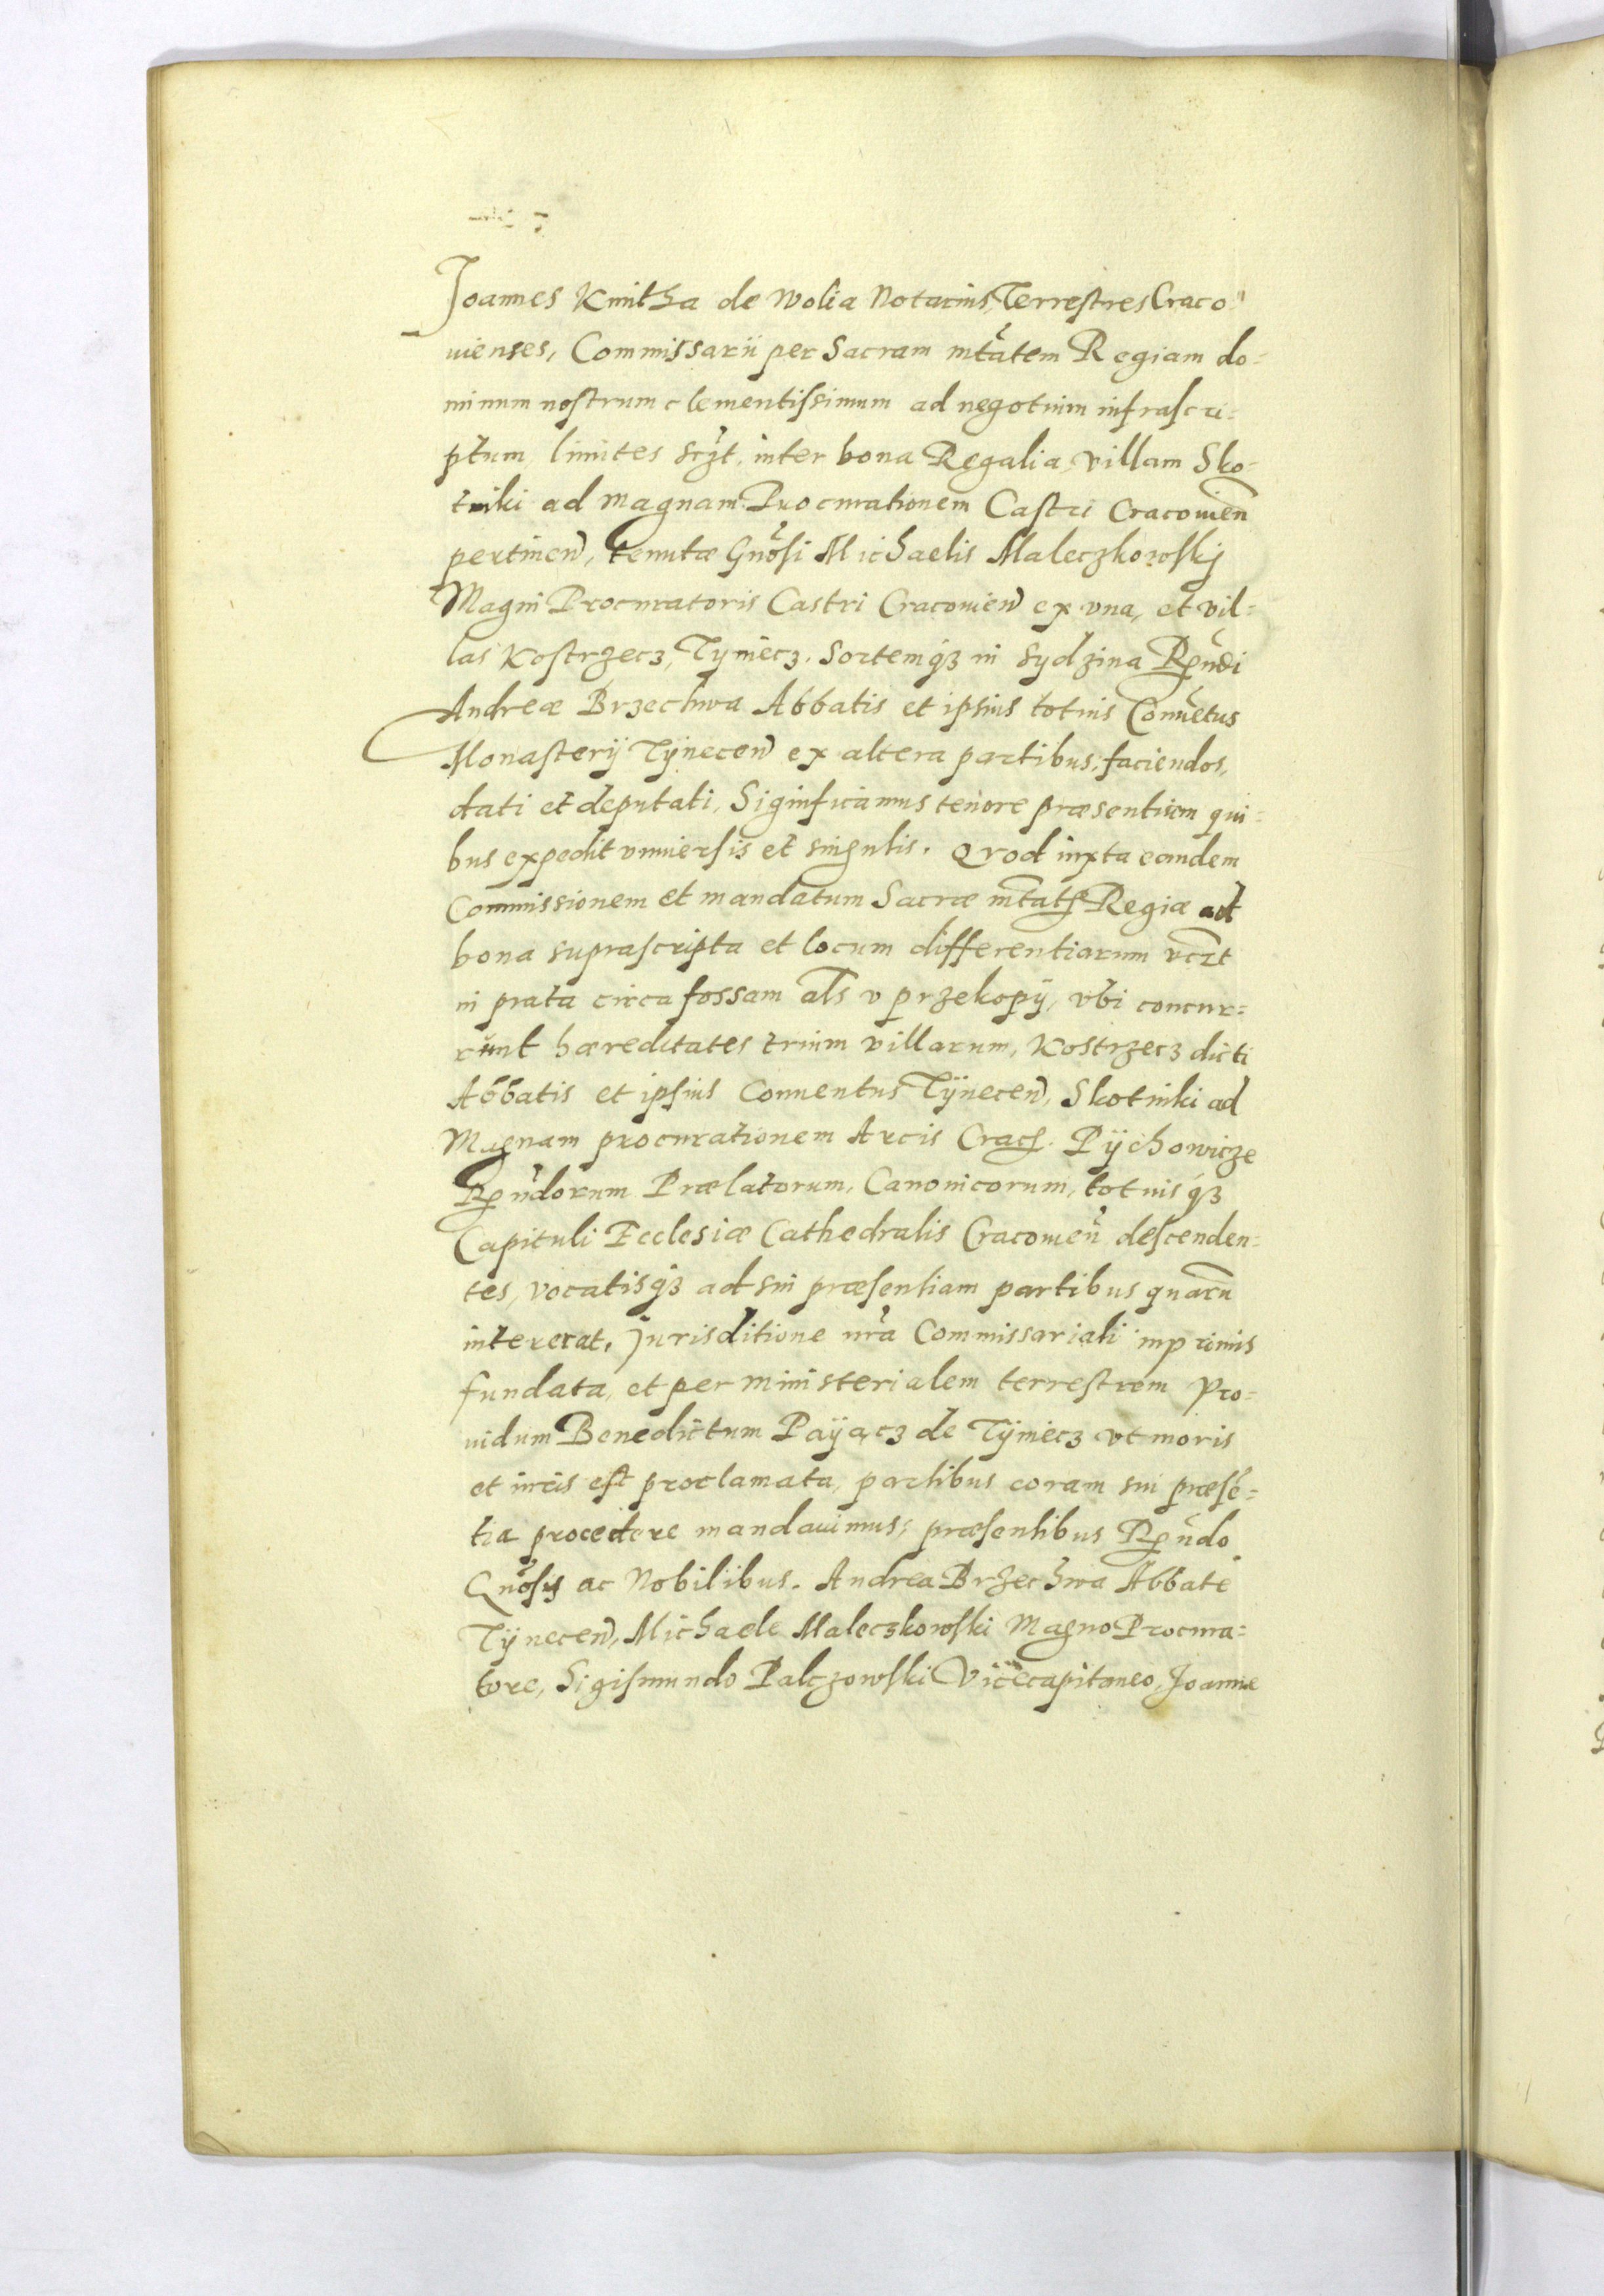 Joannes Kmitha de Wolia Notarius, Terrestres Craco=
uienses, Commissarii per Sacram mtãtem Regiam do=
minum nostrum clementissimum ad negotium infrascri=
ptum limites sczt. inter bona Regalia, villam Sko=
tniki ad magnam Procurationem Castri Cracouien̄
pertinen̄, tenutæ Gnõsi Michaelis Maleczkowskj
Magni Procuratoris Castri Cracouien̄ ex vna, et vil=
las Kostrzecz, Tyniecz, Sortemqȝ in Sydzina Rp̄ndi
Andreæ Brzechwa Abbatis et ipsius totius Conuẽtus
Monasterÿ Tÿnecen̄ ex altera partibus, faciendos,
dati et deputati, Significamus tenore præsentium qui=
bus expedit vniuersis et singulis. Qvod iuxta eandem
Commissionem et mandatum Sacræ mtãtis Regiæ ad
bona suprascripta et locum differentiarum vczt
in prata circa fossam als v przekopÿ, vbi concur=
runt hæreditates trium villarum, Kostrzecz dicti
Abbatis et ipsius Conuentus Tÿnecen̄, Skotniki ad
Magnam procurationem Arcis Cracs. Pÿchowicze
Rp̄ndorum Prælatorum, Canonicorum, totiusqȝ
Capituli Ecclesiæ Cathedralis Cracouien̄ descenden=
tes, vocatisqȝ ad sui præsentiam partibus quarũ
intererat, Jurisditione nrã Commissariali inprimis
fundata, et per ministerialem terrestrem Pro=
uidum Benedictum Paÿącz de Tÿniecz vt moris
et iuris est proclamata, partibus coram sui præsẽ=
tia procedere mandauimus; præsentibus Rp̄ndo
Gnõsis ac Nobilibus. Andrea Brzechwa Abbate
Tÿnecen̄, Michaele Maleczkowski Magno Procura=
tore, Sigismundo Palczowski Vicecapitaneo, Joanne